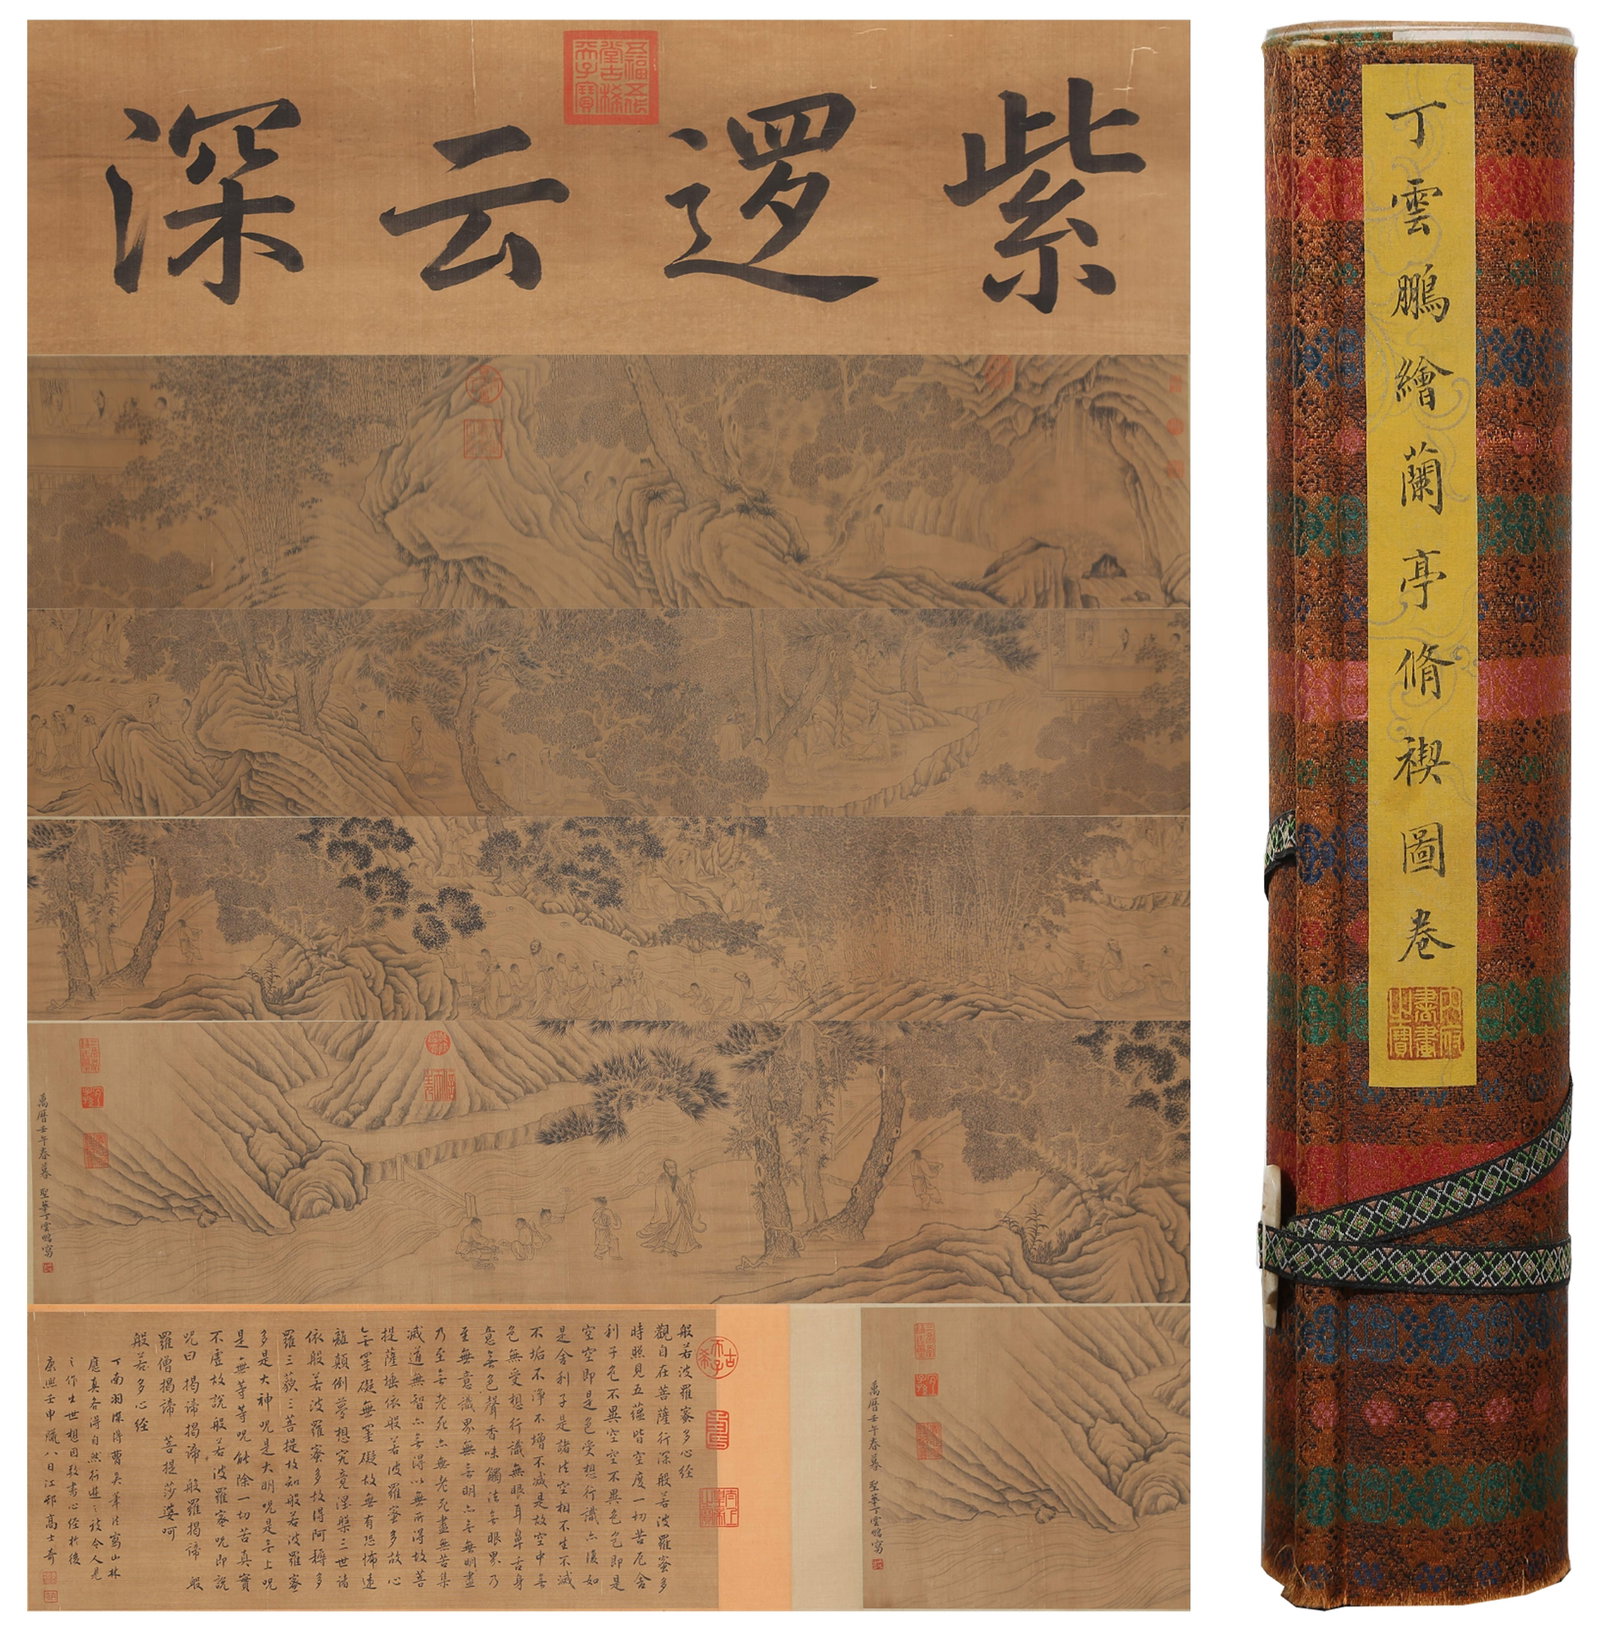 紫邏云深
五福五代堂古稀天子寶
丁雲鵬繪蘭亭脩禊圖卷
內府書畫之寶
萬曆壬午春暮 聖華丁雲鵬寫
萬曆壬午春暮 聖華丁雲鵬寫
般若波羅蜜多心經
觀自在菩薩行深般若波羅蜜多
時照見五蘊皆空度一切苦厄舍
利子色不異空空不異色色即是
空空即是色受想行識亦復如
是舍利子是諸法空相不生不滅
不垢不淨不增不減是故空中无
色無受想行識無眼耳鼻舌身
意无色聲香味觸法无眼界乃
至無意識界無无明亦无無明盡
乃至无老死亦無老死盡無苦集
滅道無智亦无得以無所得故菩
提薩埵依般若波羅蜜多故心
无罣礙無罣礙故無有恐怖遠
離顛倒夢想究竟涅槃三世諸
依般若波羅蜜多故得阿耨多
羅三藐三菩提故知般若波羅蜜
多是大神咒是大明咒是无上咒
是無等等咒能除一切苦真實
不虛故說般若波羅蜜咒即說
咒曰 揭諦揭諦 般羅揭諦 般
羅僧揭諦 菩提莎婆呵
般若多心經
丁南羽深得曹吳筆法寫山林
應真各得自然行遊之致令人見
之作出世想因敬書心經於後
康熙壬申臘八日江邨高士奇